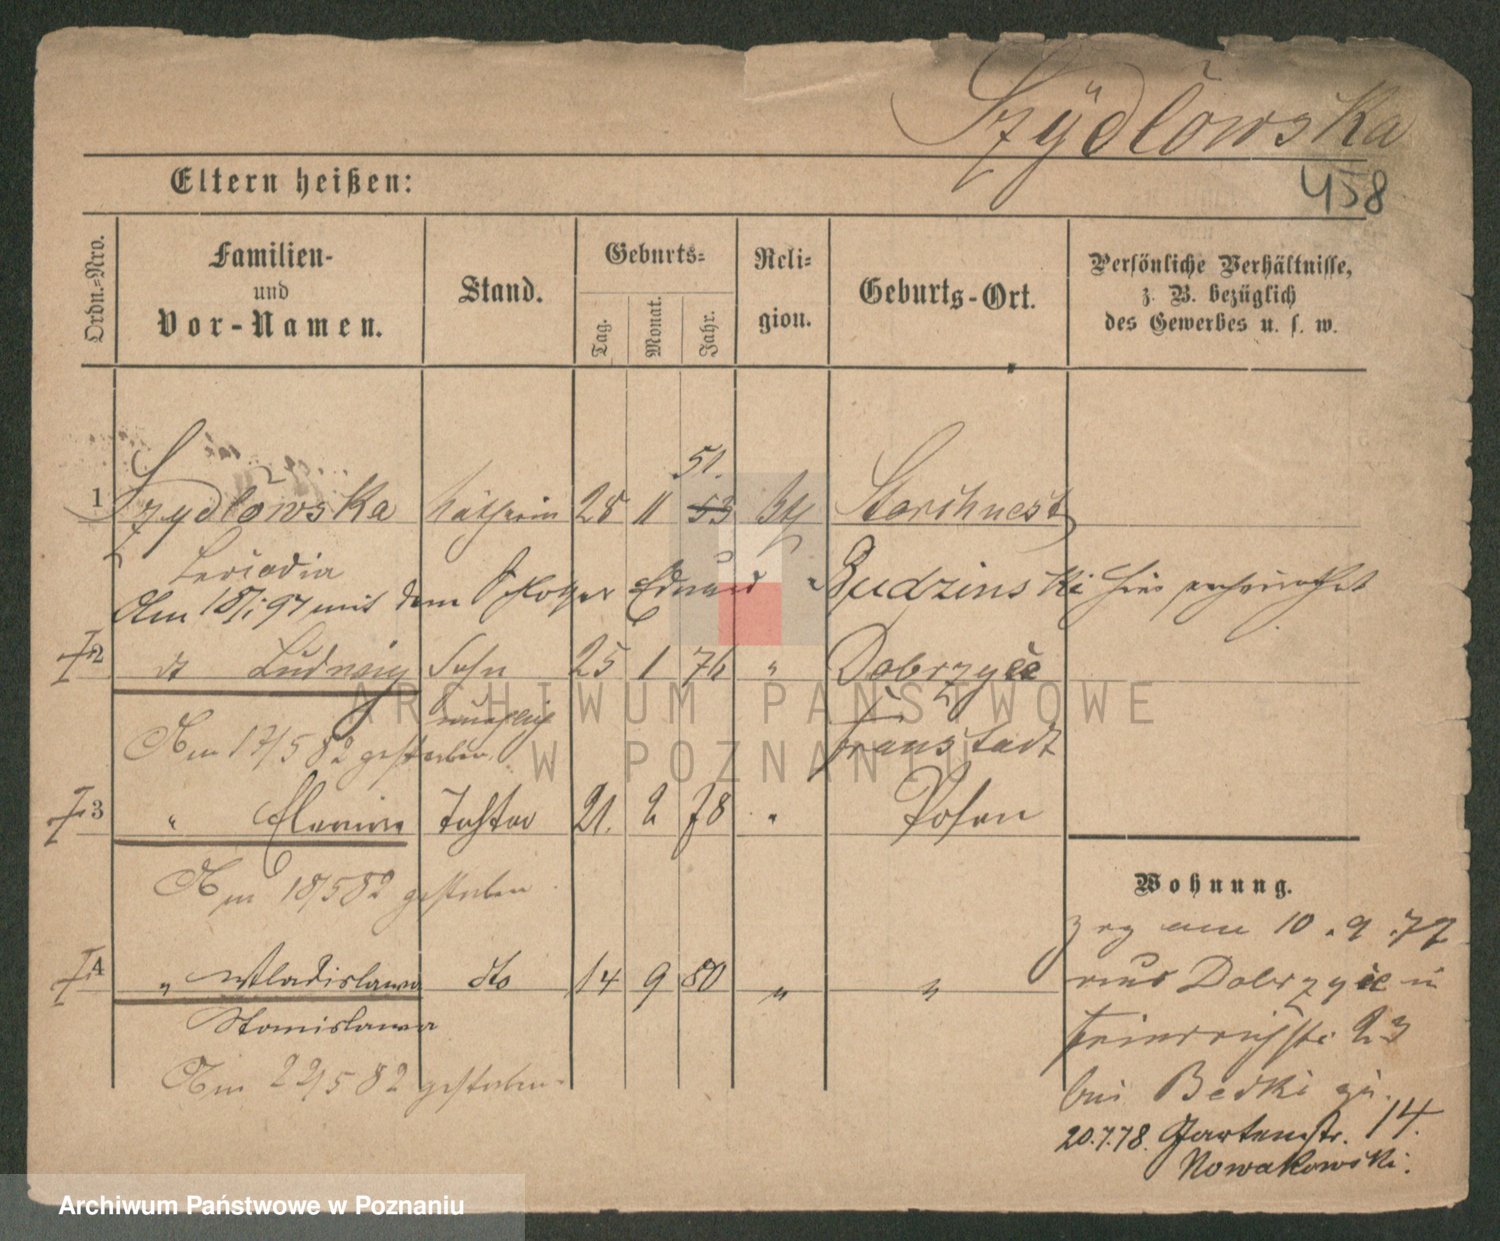 Szÿdlowska
458
Eltern heißen:
Ordn.-Nro.
Familien-
und
Vor-Namen.
Stand.
Geburts-
Tag.
Monat.
Jahr.
Reli-
gion.
Geburts-Ort.
Persönliche Verhältnisse,
z. B. bezüglich
des Gewerbes u. s. w.
51.
1 Szydlowska 28 11 53 Storchnest
Leocadia
Am 18/1 97 mit dem Eduard Budzinski hier verheirathet
2 dt Ludwig Sohn 25 1 76 " Dobrzyce
Am 17/5 82 gestorben. Fraustadt
3 " Tochter 21. 2 78 " Posen
Am 18/5 82 gestorben
Wohnung.
zog am 10.9.77
4 " Wladislawa dto 14 9 80 " "
aus Dobrzyce in
Stanislawa
23
Am 22/5 82 gestorben.
bei Bedki zu.
20.7.78. Gartenstr. 14.
Nowakowski.
ARCHIWUM PAŃSTWOWE
W POZNANIU
Archiwum Państwowe w Poznaniu